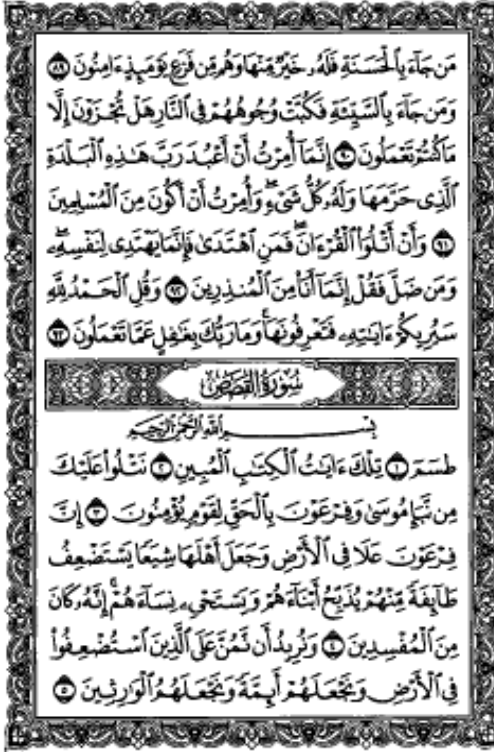 مَن جَآءَ بِٱلْحَسَنَةِ فَلَهُۥ خَيْرٌ مِّنْهَا وَهُم مِّن فَزَعٍ يَوْمَئِذٍ ءَامِنُونَ ٨٩
وَمَن جَآءَ بِٱلسَّيِّئَةِ فَكُبَّتْ وُجُوهُهُمْ فِى ٱلنَّارِ هَلْ تُجْزَوْنَ إِلَّا
مَا كُنتُمْ تَعْمَلُونَ ٩٠ إِنَّمَآ أُمِرْتُ أَنْ أَعْبُدَ رَبَّ هَٰذِهِ ٱلْبَلْدَةِ
ٱلَّذِى حَرَّمَهَا وَلَهُۥ كُلُّ شَىْءٍ وَأُمِرْتُ أَنْ أَكُونَ مِنَ ٱلْمُسْلِمِينَ
٩١ وَأَنْ أَتْلُوَا۟ ٱلْقُرْءَانَ فَمَنِ ٱهْتَدَىٰ فَإِنَّمَا يَهْتَدِى لِنَفْسِهِۦ
وَمَن ضَلَّ فَقُلْ إِنَّمَآ أَنَا۠ مِنَ ٱلْمُنذِرِينَ ٩٢ وَقُلِ ٱلْحَمْدُ لِلَّهِ
سَيُرِيكُمْ ءَايَٰتِهِۦ فَتَعْرِفُونَهَا وَمَا رَبُّكَ بِغَٰفِلٍ عَمَّا تَعْمَلُونَ ٩٣
سُورَةُ القَصَصِ
بِسْمِ ٱللَّهِ ٱلرَّحْمَٰنِ ٱلرَّحِيمِ
طسٓمٓ ١ تِلْكَ ءَايَٰتُ ٱلْكِتَٰبِ ٱلْمُبِينِ ٢ نَتْلُوا۟ عَلَيْكَ
مِن نَّبَإِ مُوسَىٰ وَفِرْعَوْنَ بِٱلْحَقِّ لِقَوْمٍ يُؤْمِنُونَ ٣ إِنَّ
فِرْعَوْنَ عَلَا فِى ٱلْأَرْضِ وَجَعَلَ أَهْلَهَا شِيَعًا يَسْتَضْعِفُ
طَآئِفَةً مِّنْهُمْ يُذَبِّحُ أَبْنَآءَهُمْ وَيَسْتَحْىِۦ نِسَآءَهُمْ إِنَّهُۥ كَانَ
مِنَ ٱلْمُفْسِدِينَ ٤ وَنُرِيدُ أَن نَّمُنَّ عَلَى ٱلَّذِينَ ٱسْتُضْعِفُوا۟
فِى ٱلْأَرْضِ وَنَجْعَلَهُمْ أَئِمَّةً وَنَجْعَلَهُمُ ٱلْوَٰرِثِينَ ٥